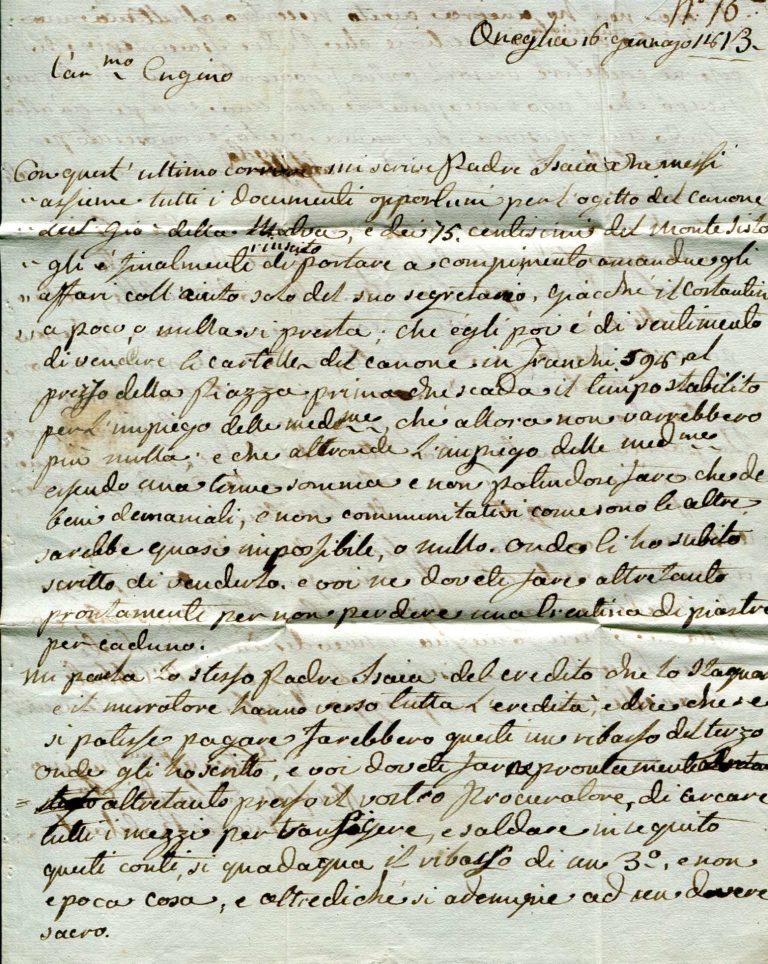 N.° 16
Oneglia 16 gennajo 1813.
Car.mo Cugino
Con quest' ultimo corriere mi scrive Padre Isaia che messi
assieme tutti i documenti opportuni per l'ogetto del canone
del Gio: della Malva, e dei 75. centissimi del Monte Sisto
riuscito
gli è finalmenti di portare a compimento amendue gli
affari coll'aiuto solo del suo segretario, giacché il Costantin
a poco, o nulla si presta; che egli poi é di sentimento
di vendere le cartelle del canone in Franchi 596, al
prezzo della Piazza prima che scada il tempo stabilito
per l'impiego delle med.me, ché allora non varrebbero
più nulla; e che altronde l'impiego delle med.me
essendo una tenue somma e non potendosi fare che de
beni demaniali, e non communitativi come sono le altre
sarebbe quasi impossibile, o nullo. onde li ho subito
scritto di venderlo. e voi ne doveti fare altretanto
prontamenti per non perdere una trentina di piastre
per caduno.
Mi parla lo stesso Padre Isaia del credito che lo Stagnar
e il murratore hanno verso tutta l'eredità, e dice che se
si potesse pagare farebbero questi un ribasso del terzo
onde gli ho scritto, e voi doveti farne prontamenti
altretanto presso il vostro Procuratore, di cercare
tutti i mezzi per transigere, e saldare in seguito
questi conti, si guadagna il ribasso di un 3°, e non
e poca cosa, e altrediché si adempie ad un dovere
sacro.